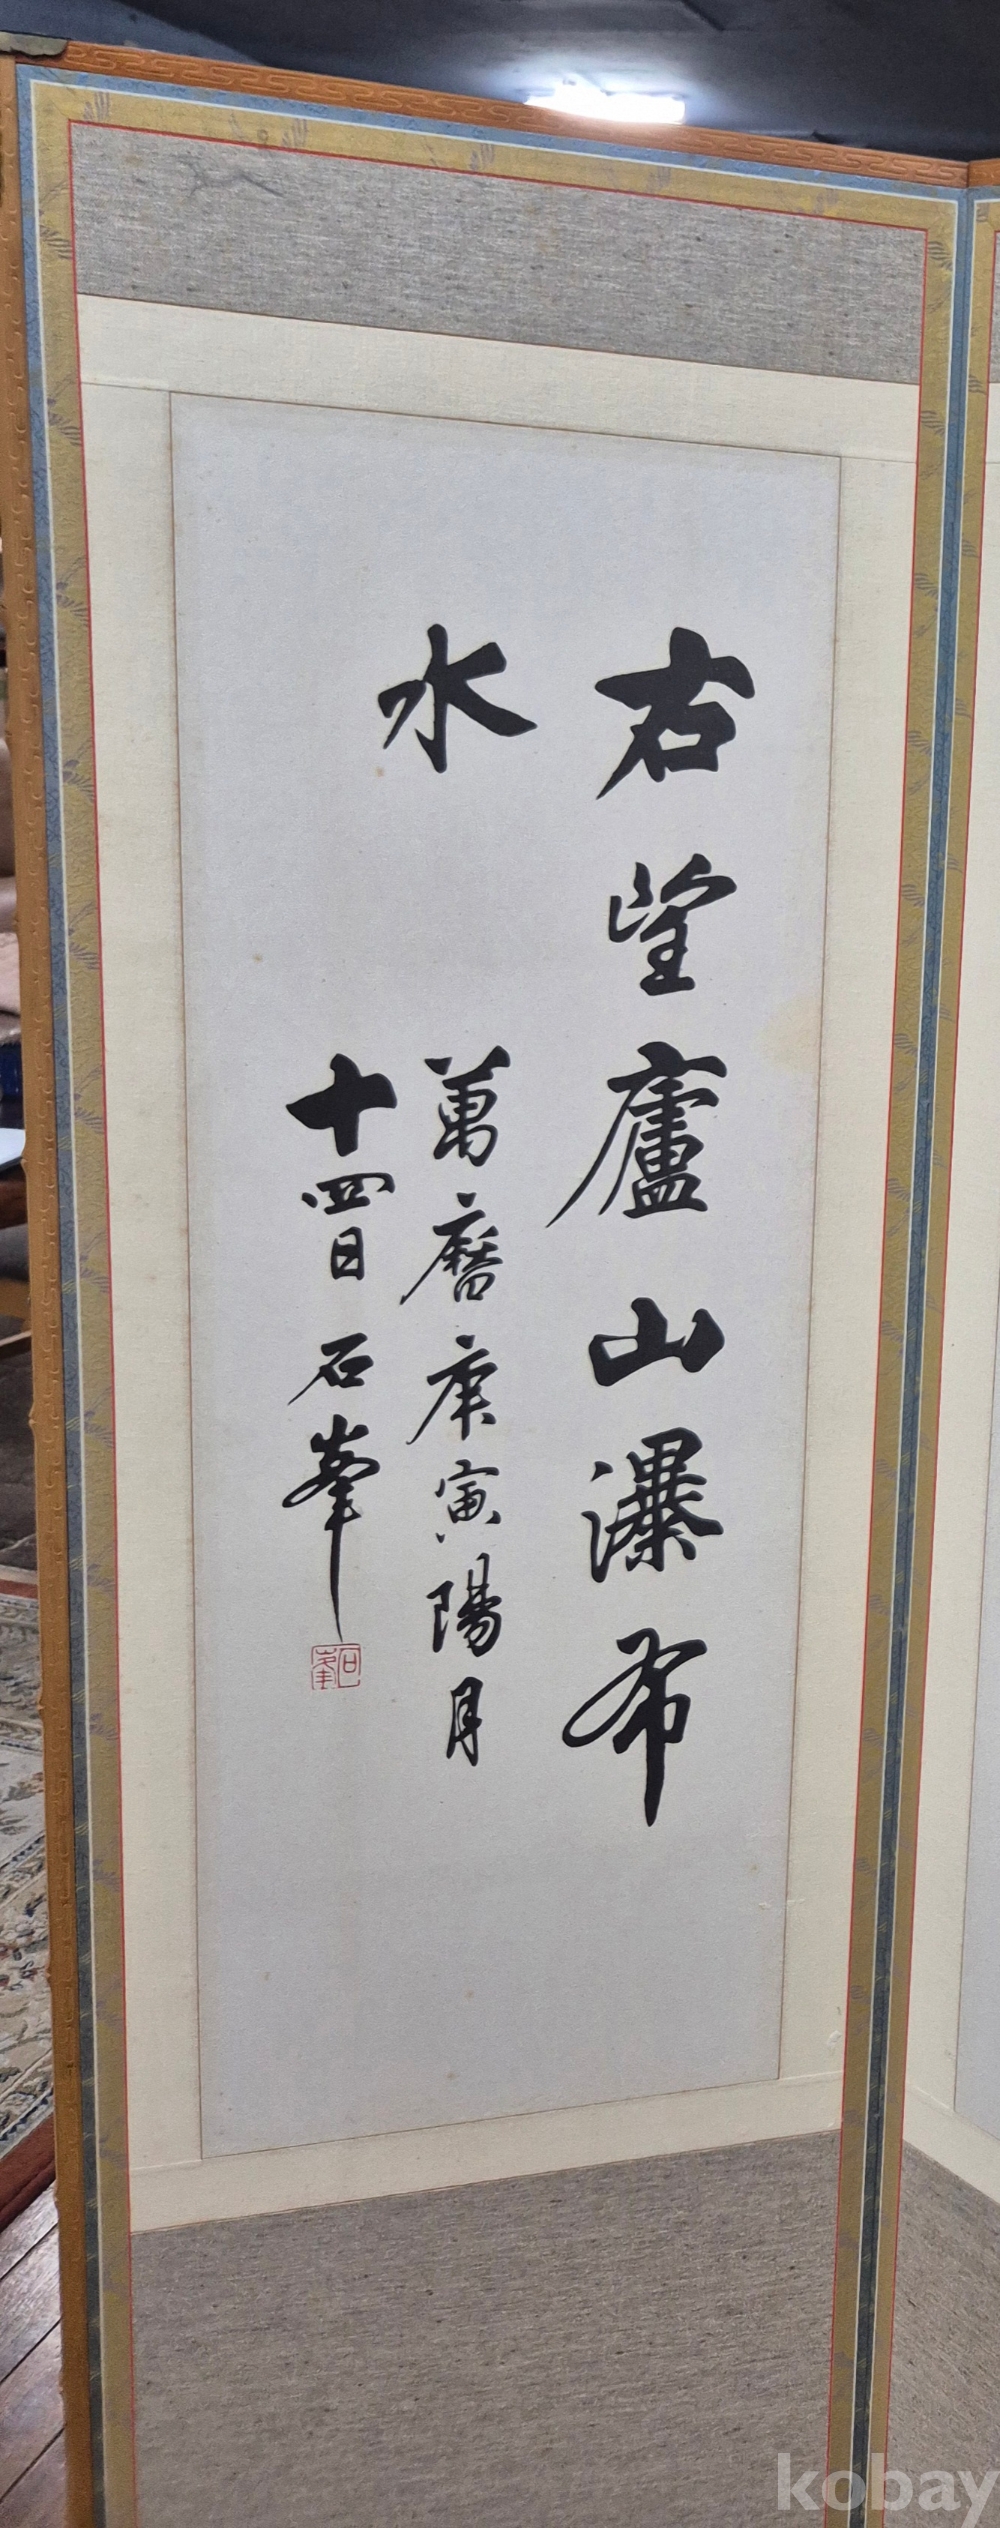 右望廬山瀑布
水
萬曆庚寅陽月
十四日 石峯
石峯
kobay